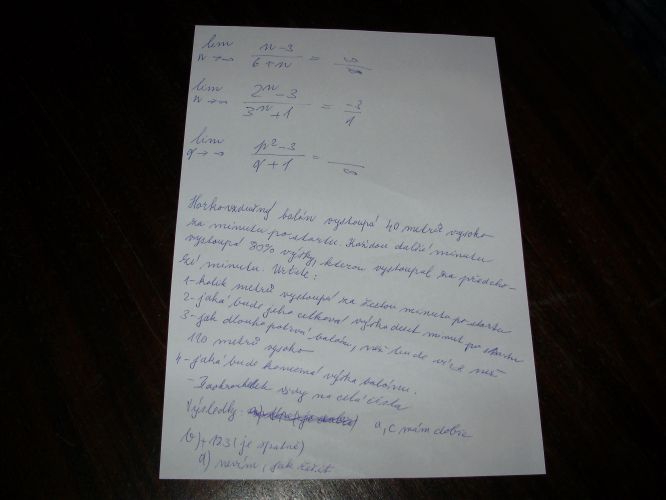 lim n→∞ n-3 / 6+n = ∞ / ∞
lim n→-∞ 2^n-3 / 3^n+1 = -3 / 1
lim q→∞ p²-3 / q+1 = / ∞
Horkovzdušný balón vystoupá 40 metrů vysoko
za minutu po startu. Každou další minutu
vystoupá 80% výšky, kterou vystoupal za předcho-
zí minutu. Určete:
1-kolik metrů vystoupá za šestou minutu po startu
2-jaká bude jeho celková výška deset minut po startu
3-jak dlouho potrvá balónu, než bude více než
110 metrů vysoko
4-jaká bude konečná výška balónu.
-Zaokrouhlete vždy na celá čísla
Výsledky- a, c mám dobře
b) + 123 (je špatně)
d) nevím, jak řešit